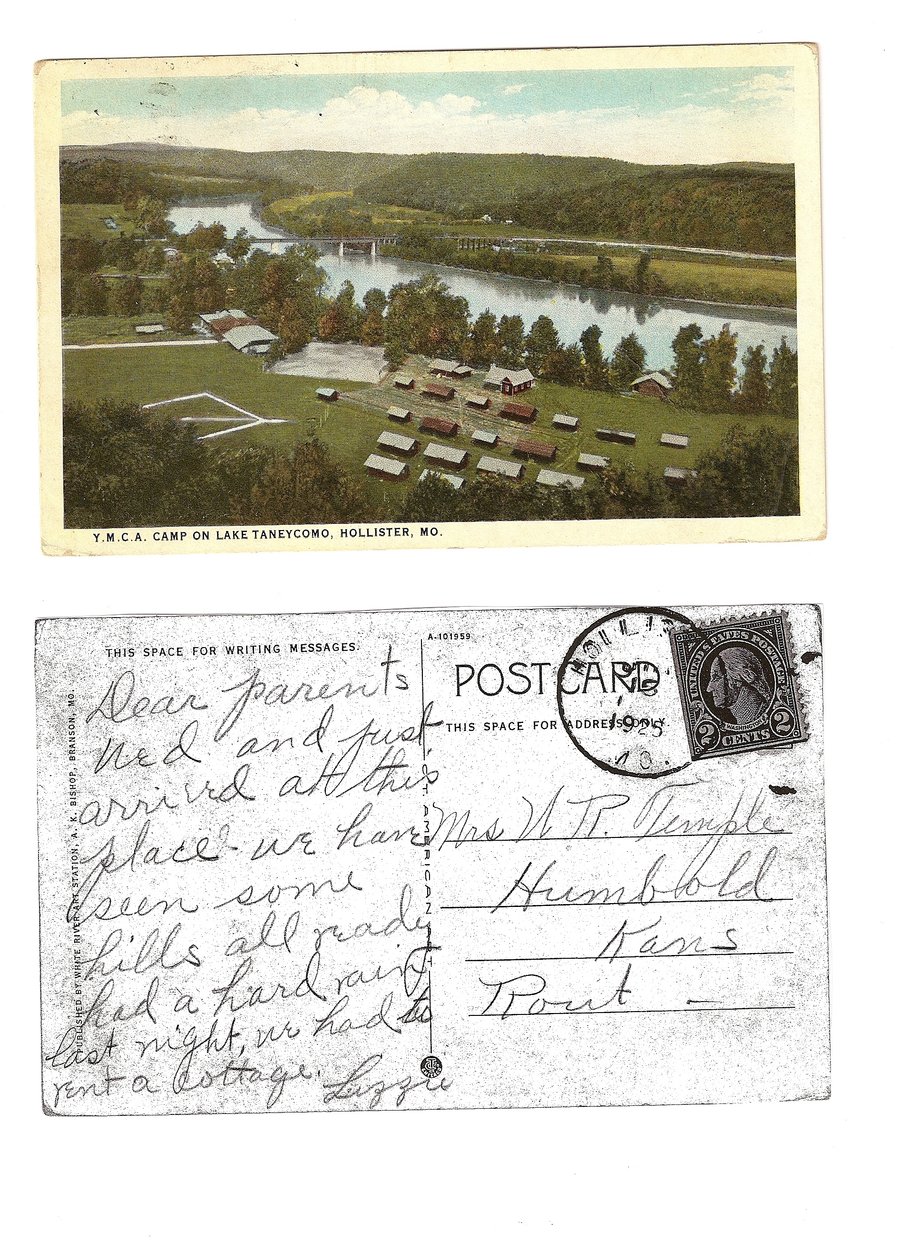 Y.M.C.A. CAMP ON LAKE TANEYCOMO, HOLLISTER, MO.
THIS SPACE FOR WRITING MESSAGES.
Dear parents
Ned and just
arrived at this
place we have
seen some
hills all ready
had a hard rain
last night, we had to
rent a cottage.
Lizzie
PUBLISHED BY WHITE RIVER ART STATION, A. K. BISHOP, BRANSON, MO.
A-101959
POST CARD
THIS SPACE FOR ADDRESS ONLY.
1925
UNITED STATES POSTAGE
2 CENTS 2
Mrs W. R. Temple
Humbold
Kans
Rout —